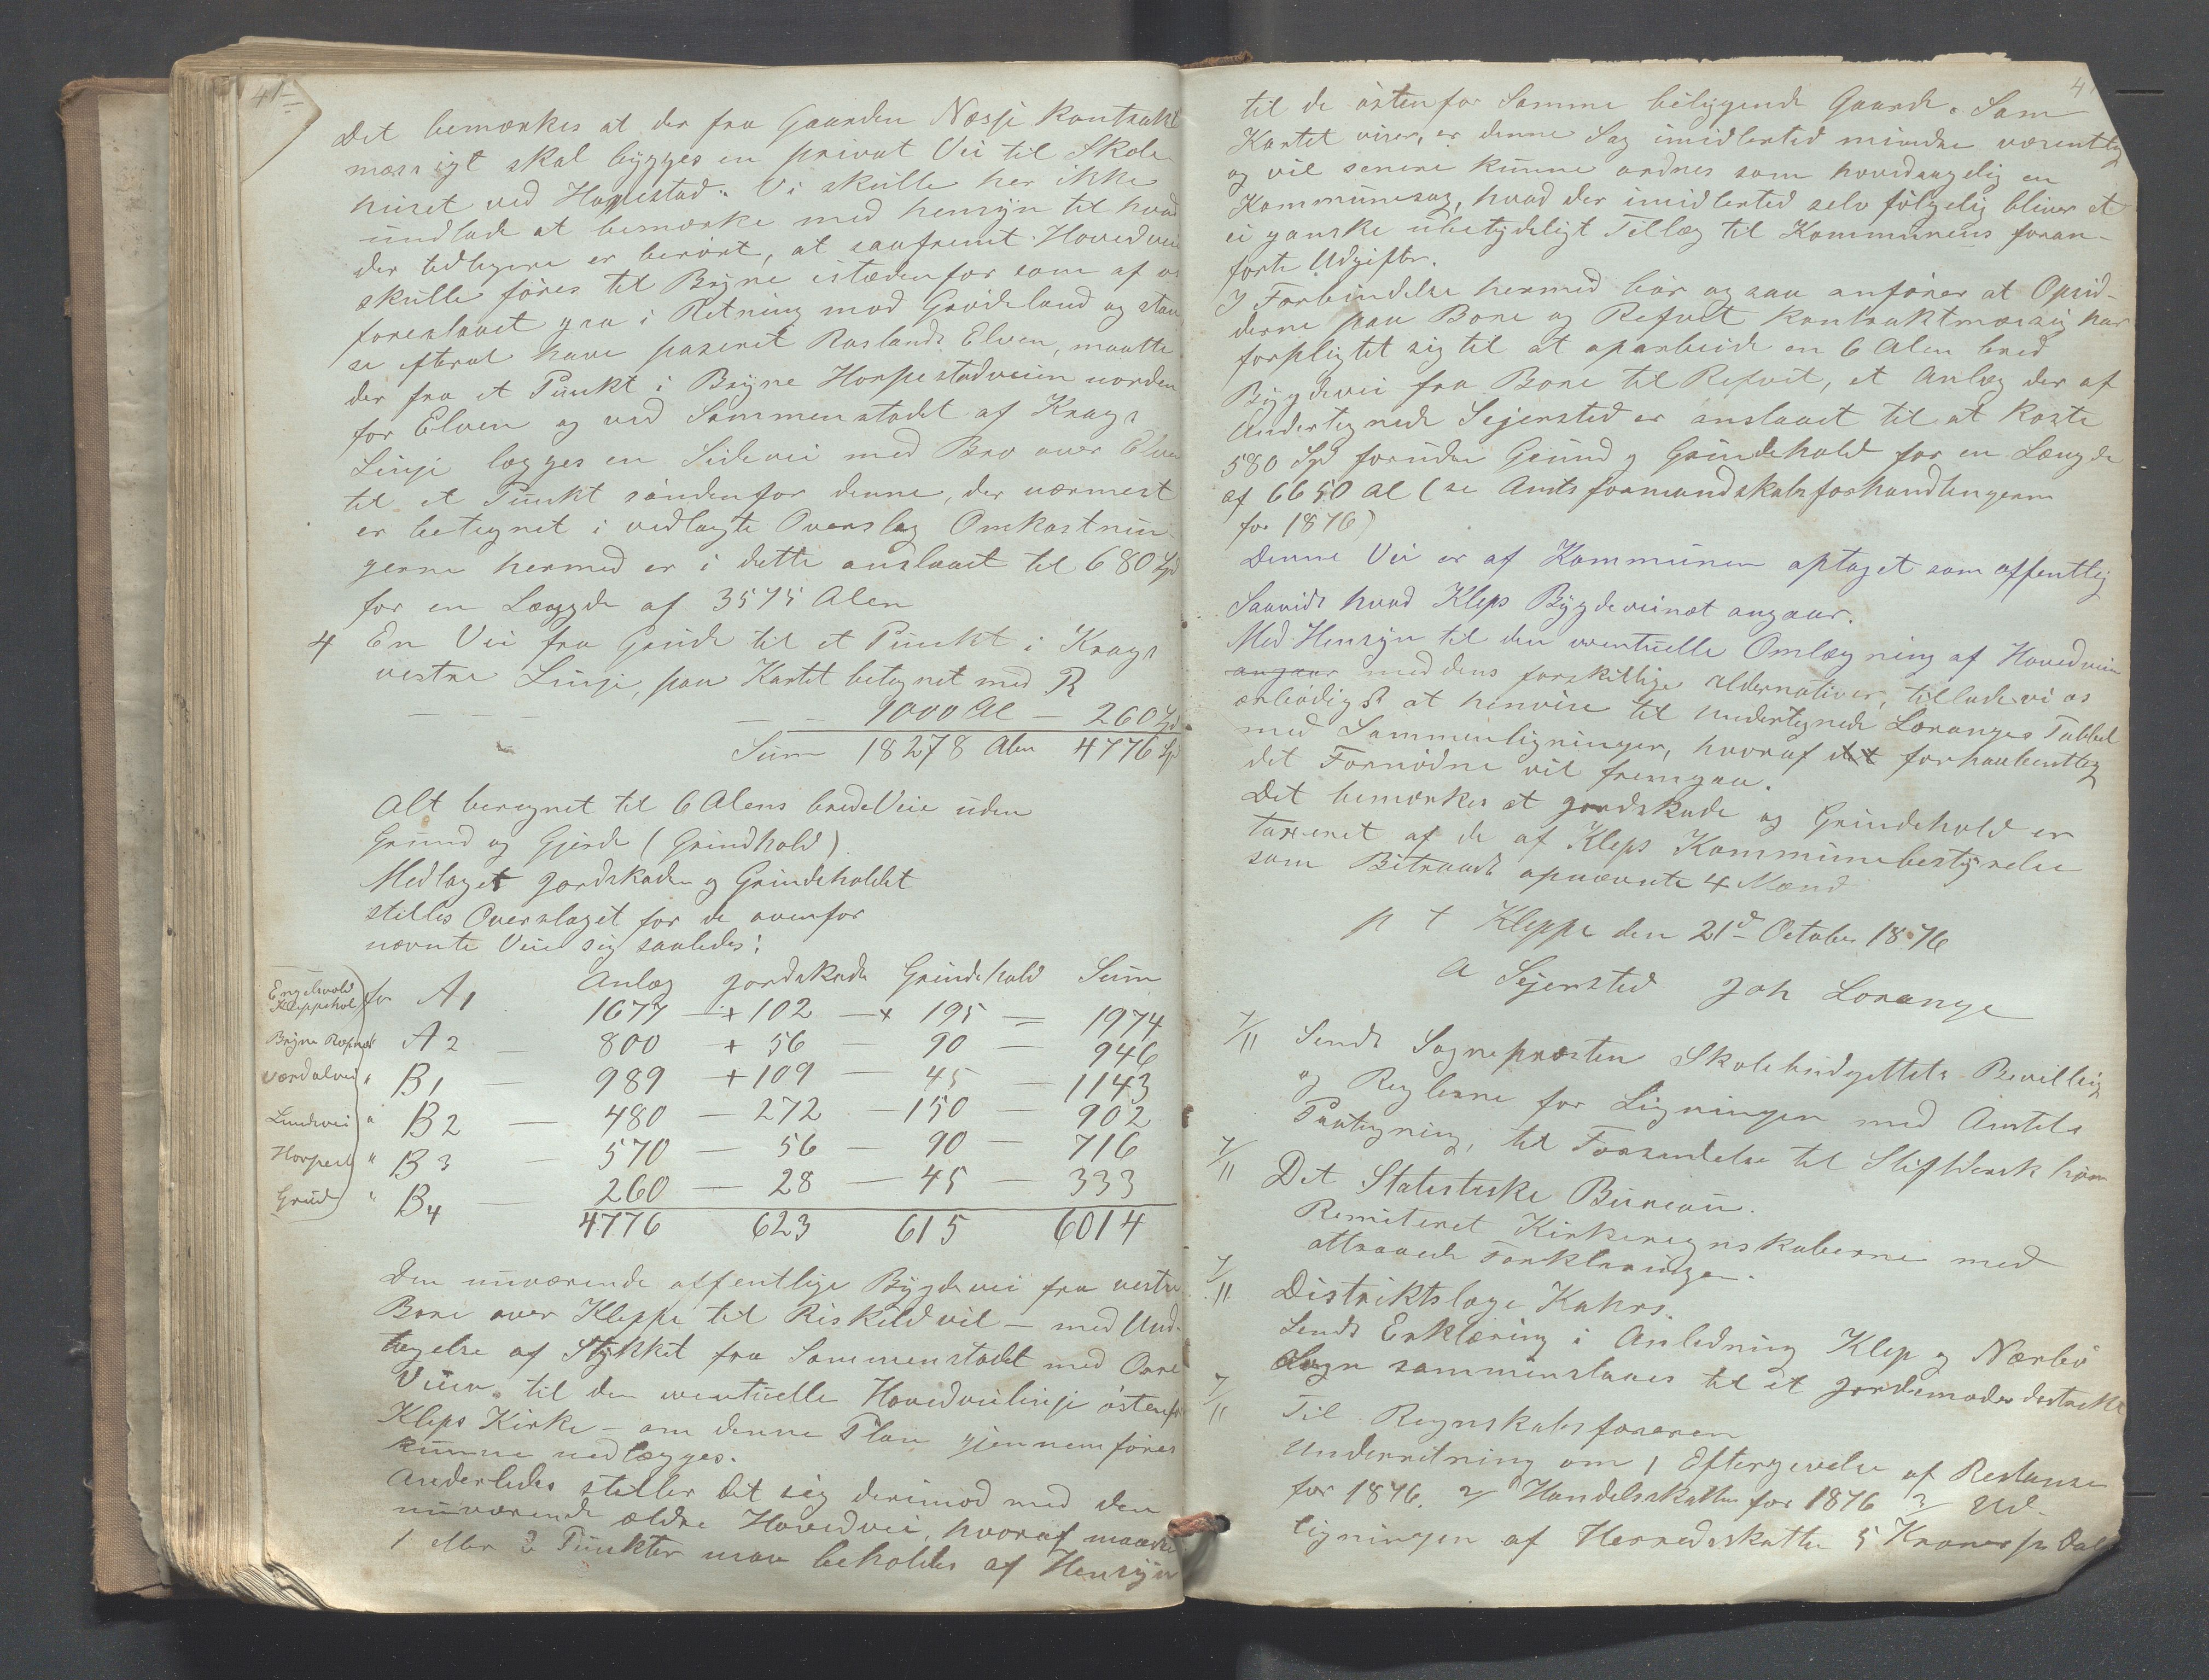 41
Det bemærkes at der fra Gaarden Næsje kontrakt
mæssigt skal bygges en privat Vei til Skole
huset ved Horpestad. Vi skulle her ikke
undlade at bemærke med hensyn til hvad
der tidligere er berørt, at saafremt Hovedveien
skulle føres til Bryne istedenfor som af os
foreslaaet gaa i Retning mod Grødeland og
se efterat have paseret Roslands Elven, maatte
der fra et Punkt i Bryne Horpestadveien norden
for Elven og ved Sammenstødet af Krags
Linje lægges en Sidevei med Bro over Elven
til et Punkt søndenfor denne, der nærmest
er betegnet i vedlagte Overslag Omkostnin
gerne hermed er i dette anslaaet til 680 Spd
for en Længde af 3575 Alen
4 En Vei fra Grude til et Punkt i Krags
vestre Linje, paa Kartet betegnet med R
— — — — — — 1000 Al — 260 Spd
Sum 18278 Alen 4776 Spd
Alt beregnet til 6 Alens brede Veie uden
Grund og Gjerde (Grindhold)
Medtaget Jordskaden og Grindeholdet
stilles Overslaget for de ovenfor
nævnte Veie sig saaledes:
Anlæg Jordskade Grindehold Sum
Engelsvold Kleppehol for A1 1677 — + 102 — + 195 = 1974
Bryne " A2 — 800 + 56 — 90 — 946
Værdalvei " B1 — 989 + 109 — 45 — 1143
Lundevei " B2 — 480 — 272 — 150 — 902
Horpest " B3 — 570 — 56 — 90 — 716
Grude " B4 — 260 — 28 — 45 — 333
4776 623 615 6014
Den nuværende offentlige Bygdevei fra vestre
Bore over Kleppe til — med Und-
tagelse af Stykket fra Sammenstødet med Orre
Veien til den eventuelle Hovedveilinje østenfor
Kleps Kirke — om denne Plan gjennemføres
kunne nedlægges.
Anderledes stiller det sig derimod med den
nuværende ældre Hovedvei, hvoraf maaske
1 eller 2 Punkter maa beholdes af Hensyn
til de østenfor Samme beliggende Gaarde. Som
Kartet viser, er denne Sag imidlertid mindre væsentlig
og vil senere kunne ordnes som hovedsagelig en
Kommunesag, hvad der imidlertid selv følgelig bliver et
ei ganske ubetydeligt Tillæg til Kommunens foran-
førte Udgifter.
I Forbindelse hermed bør ogsaa anføres at Opsid-
derne paa Bore og Refvet kontraktmæssig har
forpligtet sig til at oparbeide en 6 Alen bred
Bygdevei fra Bore til Refvet, et Anlæg der af
Undertegnede Sejersted er anslaaet til at koste
580 Spd foruden Grund og Grindehold for en Længde
af 6650 Al (se Amtsformandskabsforhandlingerne
for 1876)
Denne Vei er af Kommunen optaget som offentlig
Saavidt hvad Kleps Bygdeveinæt angaar.
Med Hensyn til den eventuelle Omlægning af Hovedveien
angaar med dens forskillige Alternativer, tillade vi os
ærbødigst at henvise til undertegnede Loranges Tabbel
med Sammenligninger, hvoraf det forhaabentlig
det Fornødne vil fremgaa.
Det bemærkes at Jordskade og Grindehold er
taxeret af de af Kleps Kommunebestyrelse
som Bitraadt opnævnte 4 Mænd
p t Kleppe den 21d October 1876
A Sejersted Joh Lorange
7/11 Sendt Sognepræsten Skolebudgettets Bevilling
og Reglerne for Ligningen med Amtets
Paategning, til Forsendelse til
7/11 Det Statistiske Bureau.
Remiteret Kirkeregnskaberne med
attraaede Forklaringer.
7/11 Distriktslæge Kahrs.
Sendt Erklæring i Anledning Klep og Nærbø
Sogn sammenslaaes til et Jordemoderdistrikt
7/11 Til Regnskabsføreren
Underretning om 1 Eftergivelse af Restanse
for 1876. 2/ Handelsskatten for 1876 3/ Ud-
ligningen af Herredsskatten 5 Kroner pr Dal